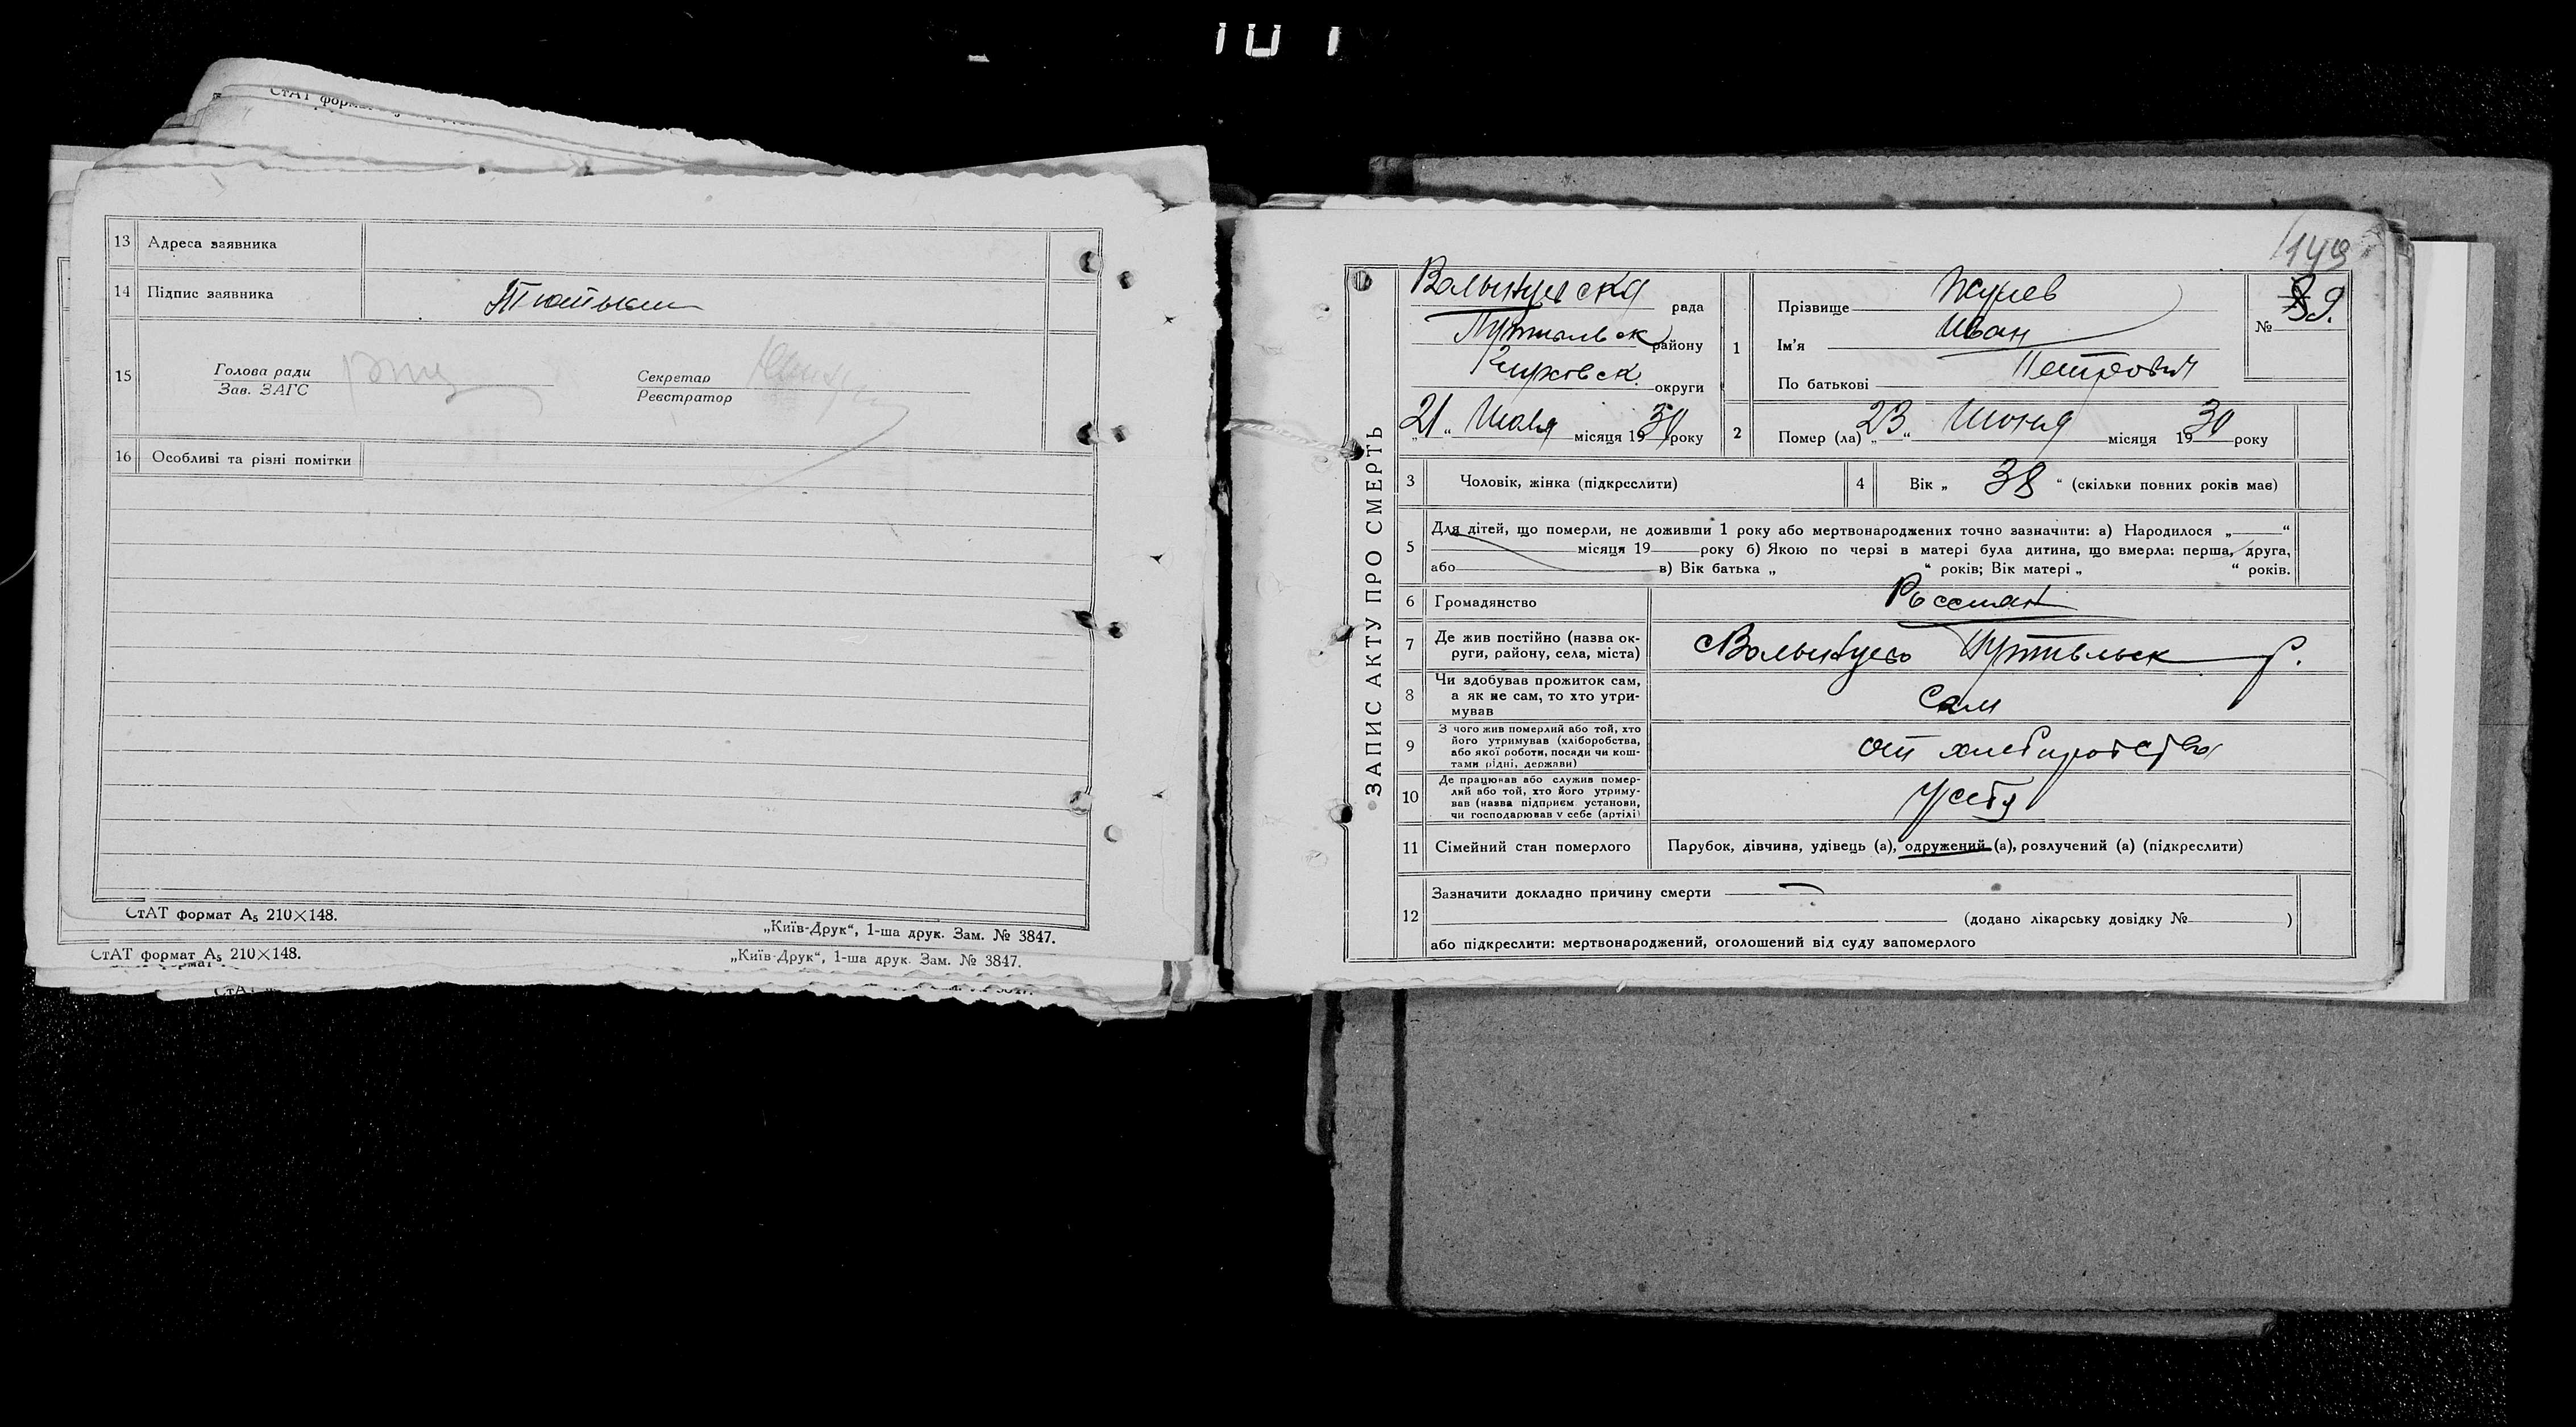 СтАТ форм
13 Адреса заявника
14 Підпис заявника
15 Голова ради
Зав. ЗАГС
Секретар
Реєстратор
16 Особливі та різні помітки
СтАТ формат А₅ 210×148.
„Київ-Друк“, 1-ша друк. Зам. № 3847.
СтАТ формат А₅ 210×148.
„Київ-Друк“, 1-ша друк. Зам. № 3847.
149
ЗАПИС АКТУ ПРО СМЕРТЬ
рада
району
округи
„21“ Июля місяця 1930 року
1 Прізвище
Ім'я Иван
По батькові Петрович
№ 89.
2 Помер (ла) „23“ Июня місяця 1930 року
3 Чоловік, жінка (підкреслити)
4 Вік „38“ (скільки повних років має)
5 Для дітей, що померли, не доживши 1 року або мертвонароджених точно зазначити: а) Народилося „ “
місяця 19 року б) Якою по черзі в матері була дитина, що вмерла: перша, друга,
або в) Вік батька „ “ років; Вік матері „ “ років.
6 Громадянство
7 Де жив постійно (назва ок-
руги, району, села, міста)
8 Чи здобував прожиток сам,
а як не сам, то хто утри-
мував
Сам
9 З чого жив померлий або той, хто
його утримував (хліборобства,
або якої роботи, посади чи кош-
тами рідні, держави)
от
10 Де працював або служив помер-
лий або той, хто його утриму-
вав (назва підприєм. установи,
чи господарював у себе (артілі)
У себя
11 Сімейний стан померлого Парубок, дівчина, удівець (а), одружений (а), розлучений (а) (підкреслити)
12 Зазначити докладно причину смерти
(додано лікарську довідку № )
або підкреслити: мертвонароджений, оголошений від суду запомерлого